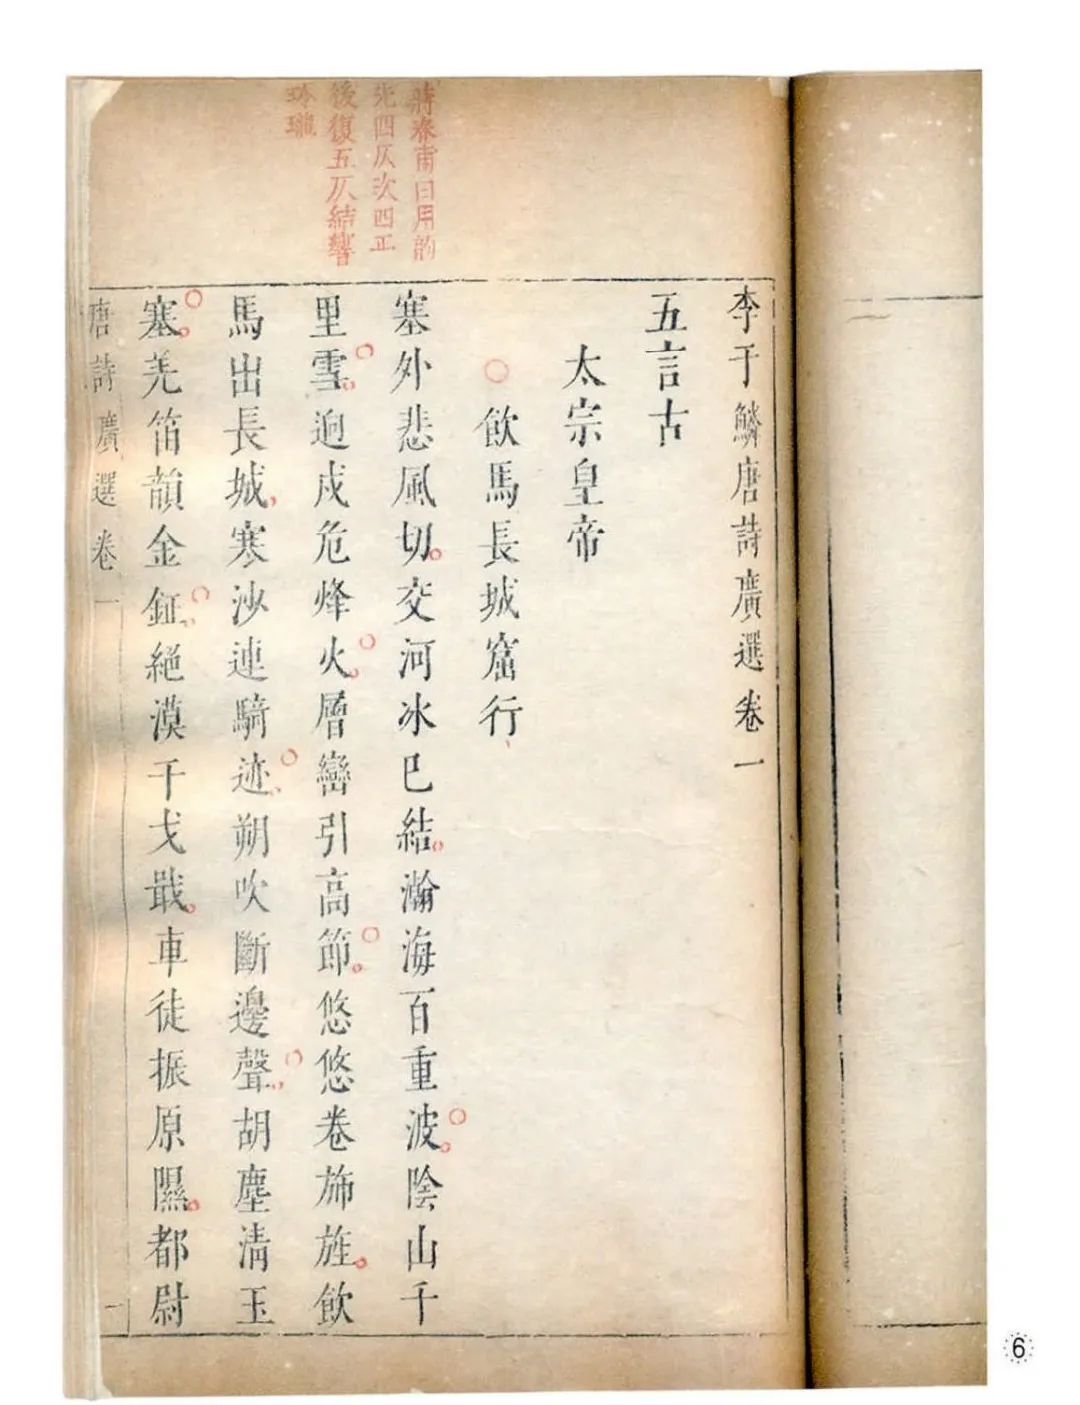 李于鱗唐詩廣選卷一
五言古
太宗皇帝
飲馬長城窟行
塞外悲風切交河冰巳結瀚海百重波陰山千
里雪迥戍危烽火層巒引高節悠悠卷斾旌飲
馬出長城寒沙連騎迹朔吹斷邊聲胡塵清玉
塞羌笛韻金鉦絕漠干戈戢車徒振原隰都尉
唐詩廣選卷一
一
蔣春甫曰用韵
先四仄次四正
後復五仄結響
玲瓏
6